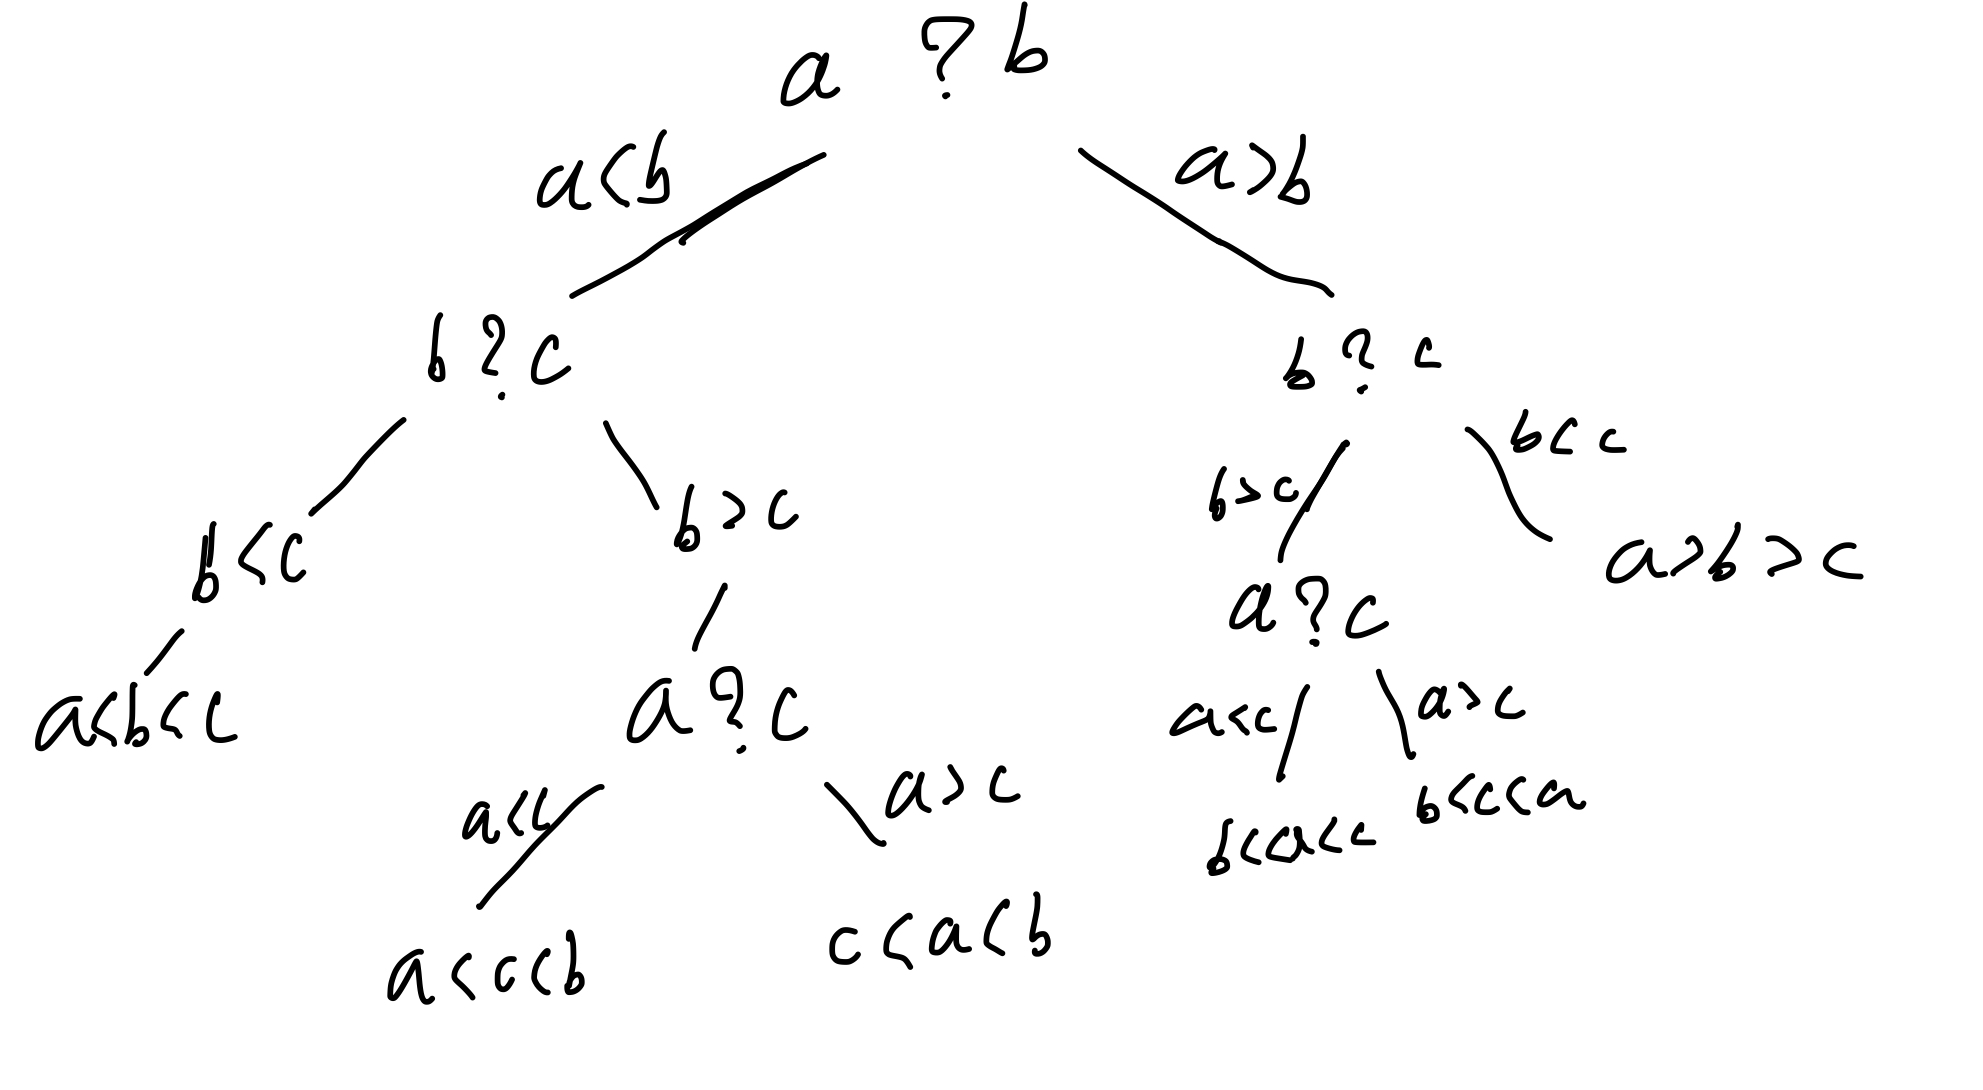 a ? b
a<b
a>b
b ? c
b ? c
b<c
b>c
b>c
b<c
a>b>c
a<b<c
a ? c
a ? c
a<c
a>c
a<c
a>c
b<a<c
b<c<a
a<c<b
c<a<b